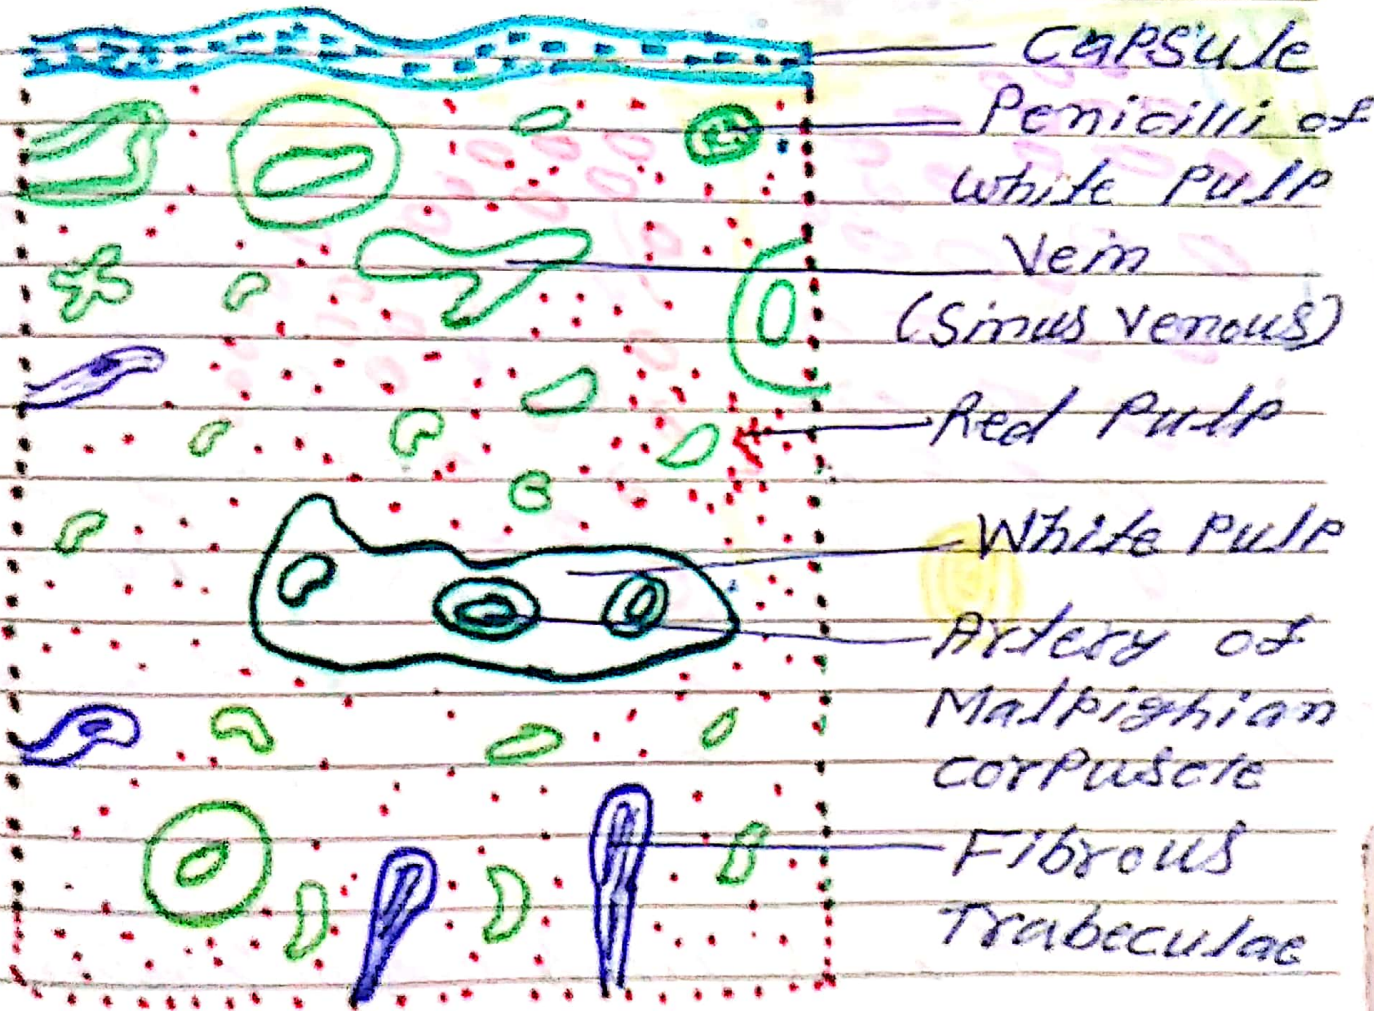 Capsule
Penicilli of
White Pulp
Vein
(Sinus Venous)
Red Pulp
White Pulp
Artery of
Malpighian
corpuscle
Fibrous
Trabeculae